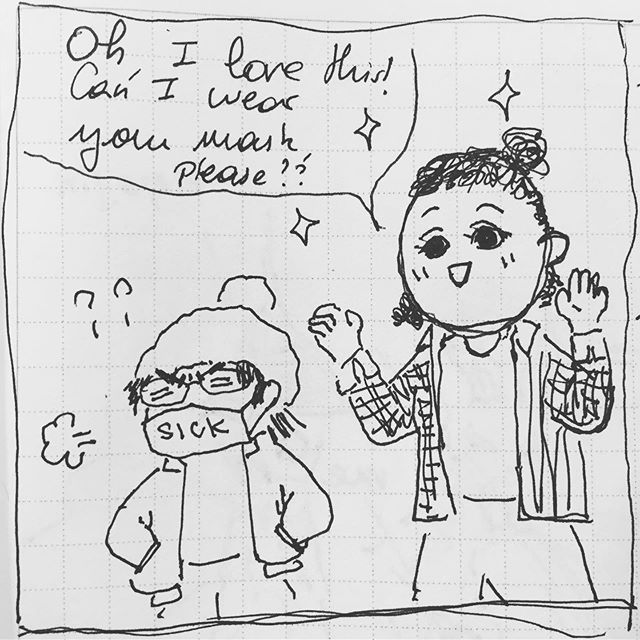 Oh I love this!
Can I wear
your mask
please??
??
SICK